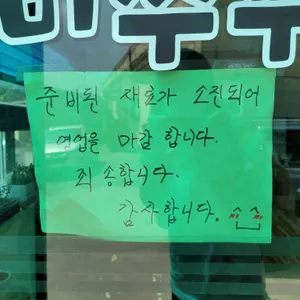 준비된 재료가 소진되어
영업을 마감 합니다.
죄송합니다.
감사합니다.